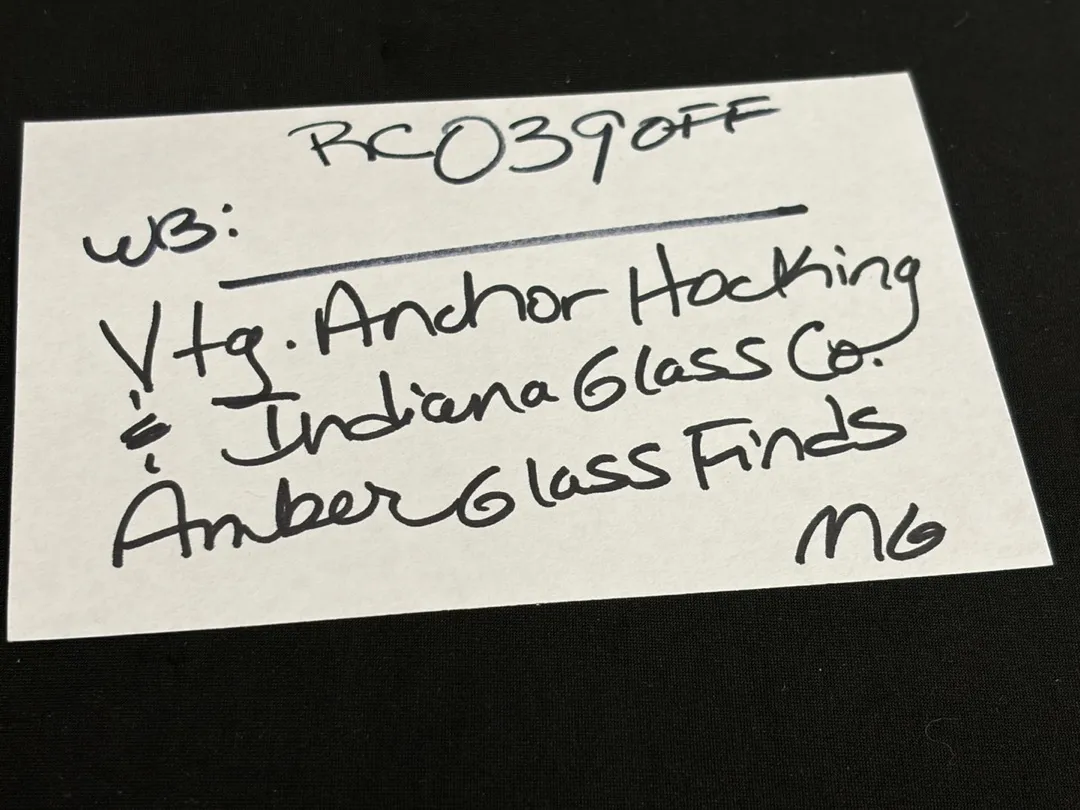 RC039OFF
WB:
Vtg. Anchor Hocking
& Indiana Glass Co.
Amber Glass Finds
MG